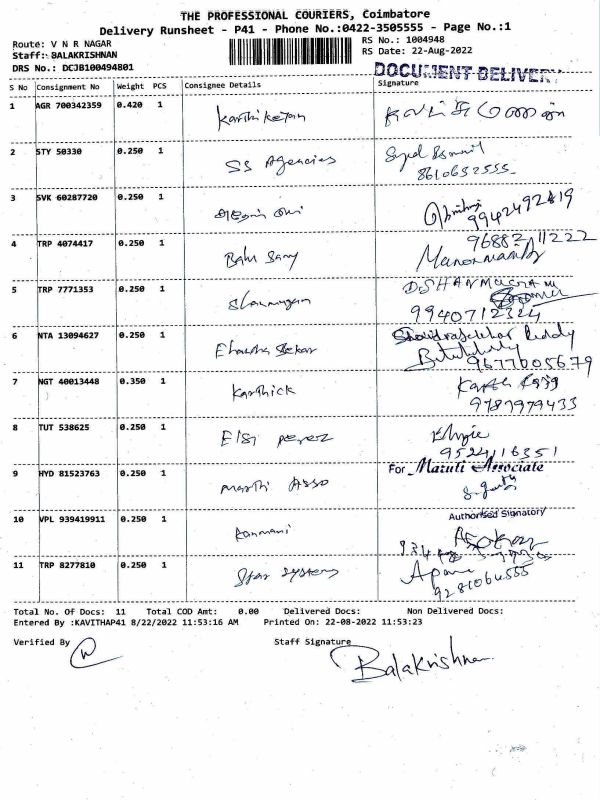 THE PROFESSIONAL COURIERS, Coimbatore
Delivery Runsheet - P41 - Phone No.:0422-3505555 - Page No.:1
Route: V N R NAGAR
RS No.: 1004948
Staff: BALAKRISHNAN
RS Date: 22-Aug-2022
DRS No.: DCJB100494801
DOCUMENT DELIVERY
S No Consignment No Weight PCS Consignee Details Signature
1 AGR 700342359 0.420 1 Karthikeyan
2 STY 50330 0.250 1 SS Agencies Syed Ismail
8610652555
3 SVK 60287720 0.250 1
9942492819
4 TRP 4074417 0.250 1 Balu Samy
5 TRP 7771353 0.250 1 D.SHANMUGAM
9940712324
6 NTA 13094627 0.250 1 Chandrasekhar Reddy
9677005679
7 NGT 40013448 0.350 1 Karthick
9787979433
8 TUT 538625 0.250 1 Elsi perez
9524116351
9 HYD 81523763 0.250 1 Maruthi Asso For Maruti Associate
Authorised Signatory
10 VPL 939419911 0.250 1 Kanmani
11 TRP 8277810 0.250 1 Star systems
9281064555
Total No. Of Docs: 11 Total COD Amt: 0.00 Delivered Docs: Non Delivered Docs:
Entered By :KAVITHAP41 8/22/2022 11:53:16 AM Printed On: 22-08-2022 11:53:23
Verified By Staff Signature
Balakrishnan